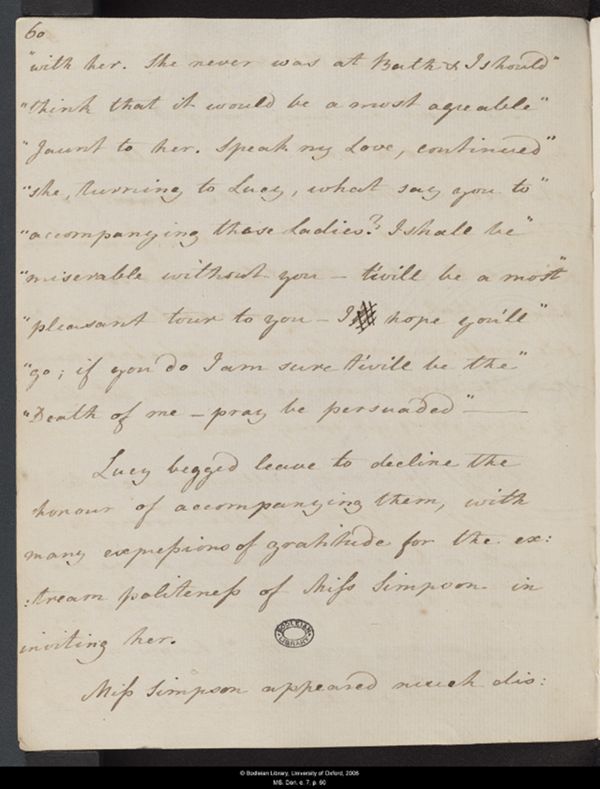 60
"with her. She never was at Bath & I should"
"think that it would be a most agreable"
"Jaunt to her. Speak my Love, continued"
"she, turning to Lucy, what say you to"
"accompanying these Ladies? I shall be"
"miserable without you — t'will be a most"
"pleasant tour to you — I hope you'll"
"go; if you do I am sure t'will be the"
"Death of me — pray be persuaded" —
Lucy begg'd leave to decline the
honour of accompanying them, with
many expressions of gratitude for the ex:
:tream politeness of Miss Simpson in
inviting her.
BODLEIAN LIBRARY
Miss Simpson appeared much dis:
© Bodleian Library, University of Oxford, 2006
MS. Don. e. 7, p. 60